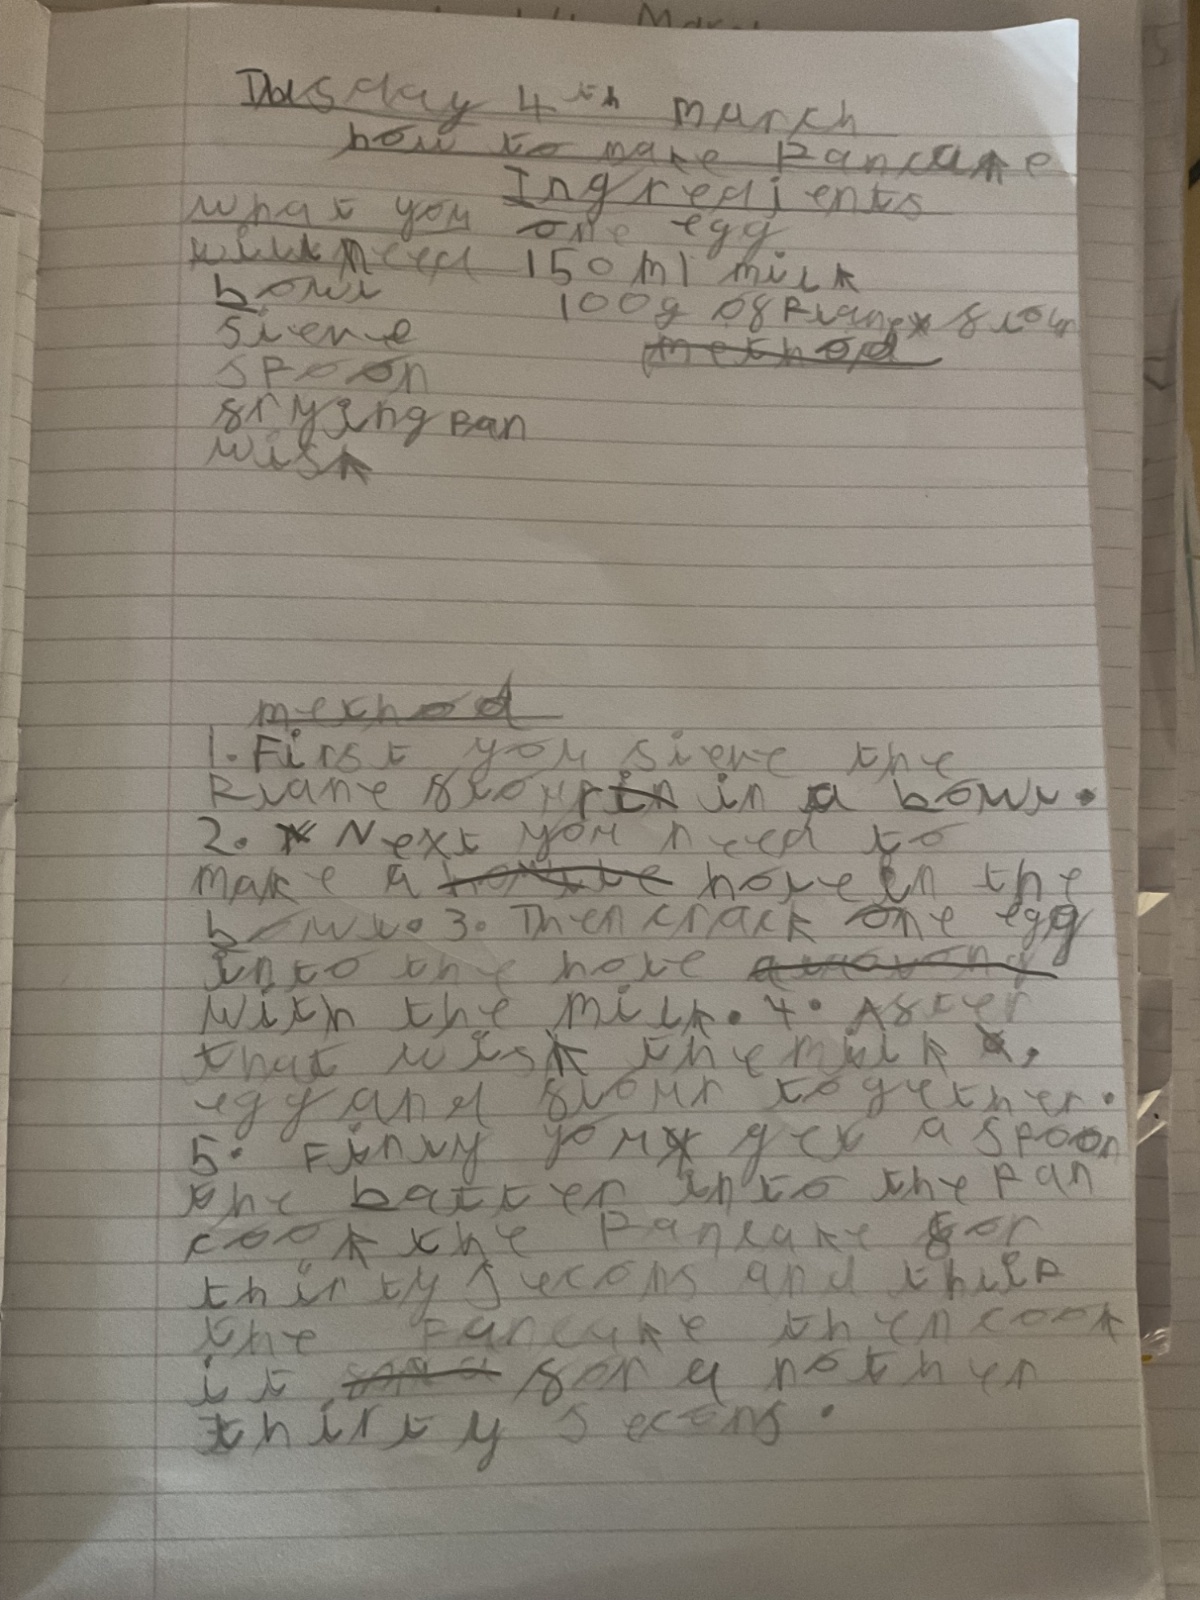 Dusday 4th March
how to make Pancake
Ingredients
what you one egg
will need 150 ml milk
bowl 100g of Plane flour
sieve method
spoon
frying Ban
wisk
method
1. First you sieve the
Plane flour in in a bowl.
2. Next you need to
make a hole in the
bowl. 3. Then crack one egg
into the hole
with the milk. 4. After
that wisk the milk,
egg and flour together.
5. Finly you get a spoon
the batter into the pan
cook the Pancake for
thirty secons and thlip
the Pancake then cook
it for a nother
thirty secons.